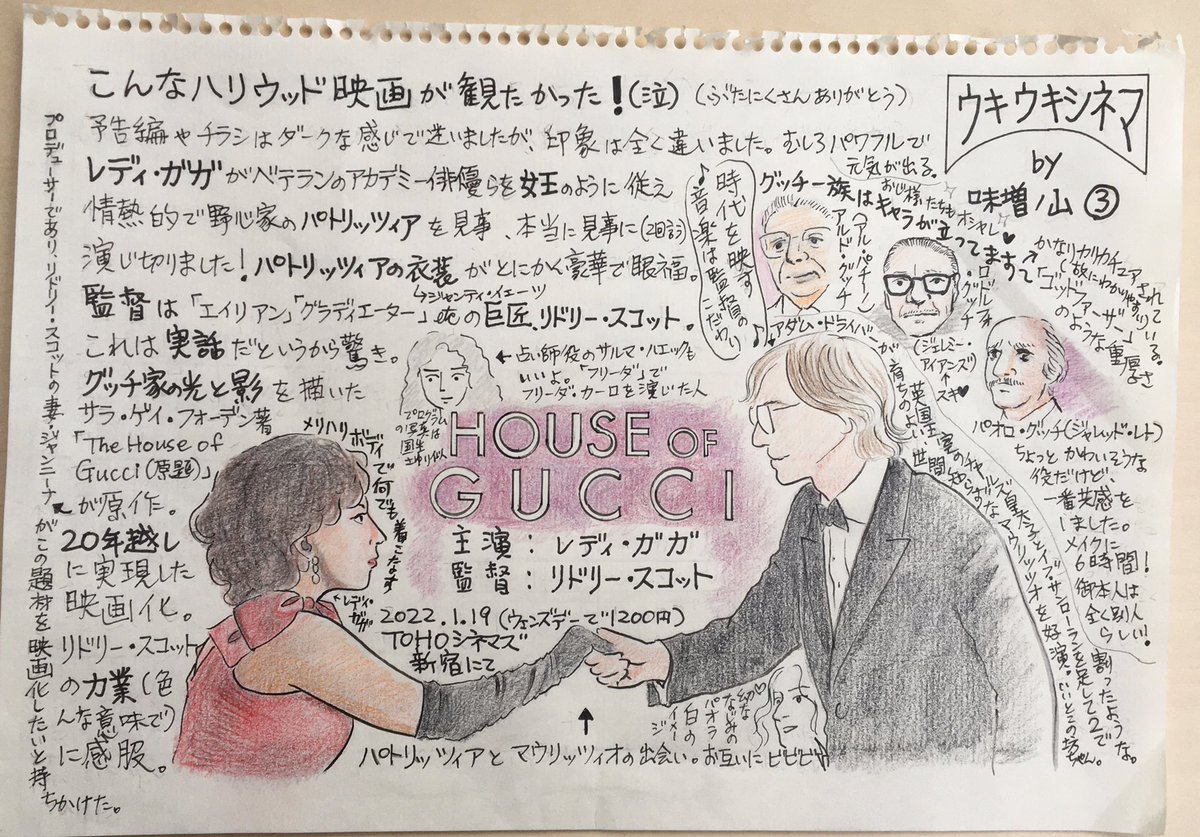 こんなハリウッド映画が観たかった!(泣)(ぶたにくさんありがとう)
予告編やチラシはダークな感じで迷いましたが、印象は全く違いました。むしろパワフルで
元気が出る。
レディ・ガガがベテランのアカデミー俳優らを女王のように従え
情熱的で野心家のパトリッツィアを見事、本当に見事に(2回言う)
演じ切りました!パトリッツィアの衣装がとにかく豪華で眼福。
↳ジャンティ・イエーツ
監督は「エイリアン」「グラディエーター」他の巨匠リドリー・スコット。
これは実話だというから驚き。
グッチ家の光と影を描いた
サラ・ゲイ・フォーデン著
「The House of
Gucci(原題)」
が原作。
20年越し
に実現した
映画化。
リドリー・スコット
の力業(色
んな意味で)
に感服。
プロデューサーであり、リドリー・スコットの妻・ジャンニーナが
この題材を映画化したいと持
ちかけた。
ウキウキシネマ
by
味増ノ山 ③
♪時代を映す
音楽は監督の
こだわり♪
グッチ一族は
キャラが立ってますて
おじ様たちもオシャレ♥
(アル・パチーノ)
アルド・グッチ
ロドルフォ・グッチ
(ジェレミー・
アイアンズ)
スキ♥
かなりカリカチュアされている。
故にわかりやすい
「ゴッドファーザー」
のような重厚さ
パオロ・グッチ(ジャレッド・レト)
ちょっとかわいそうな
役だけど、
一番共感を
しました。
メイクに
6時間!
御本人は
全く別人
らしい!
アダム・ドライバーが
育ちのよい
世間知らずな
マウリッツィオを好演。
いいとこの坊ちゃん。
英国王室のチャールズ皇太子とイヴ・サンローランを足して2で
割ったような。
←占い師役のサルマ・ハエックも
いいよ。「フリーダ」で
フリーダ・カーロを演じた人
プログラム
の写真は
メリハリボディで何でも着こなす
HOUSE OF
GUCCI
主演:レディ・ガガ
監督:リドリー・スコット
←レディ・ガガ
2022.1.19(ウェンズデーで1200円)
TOHOシネマズ
新宿にて
幼な
なじみの
パオラ
↑
パトリッツィアとマウリッツィオの出会い。お互いにビビビ